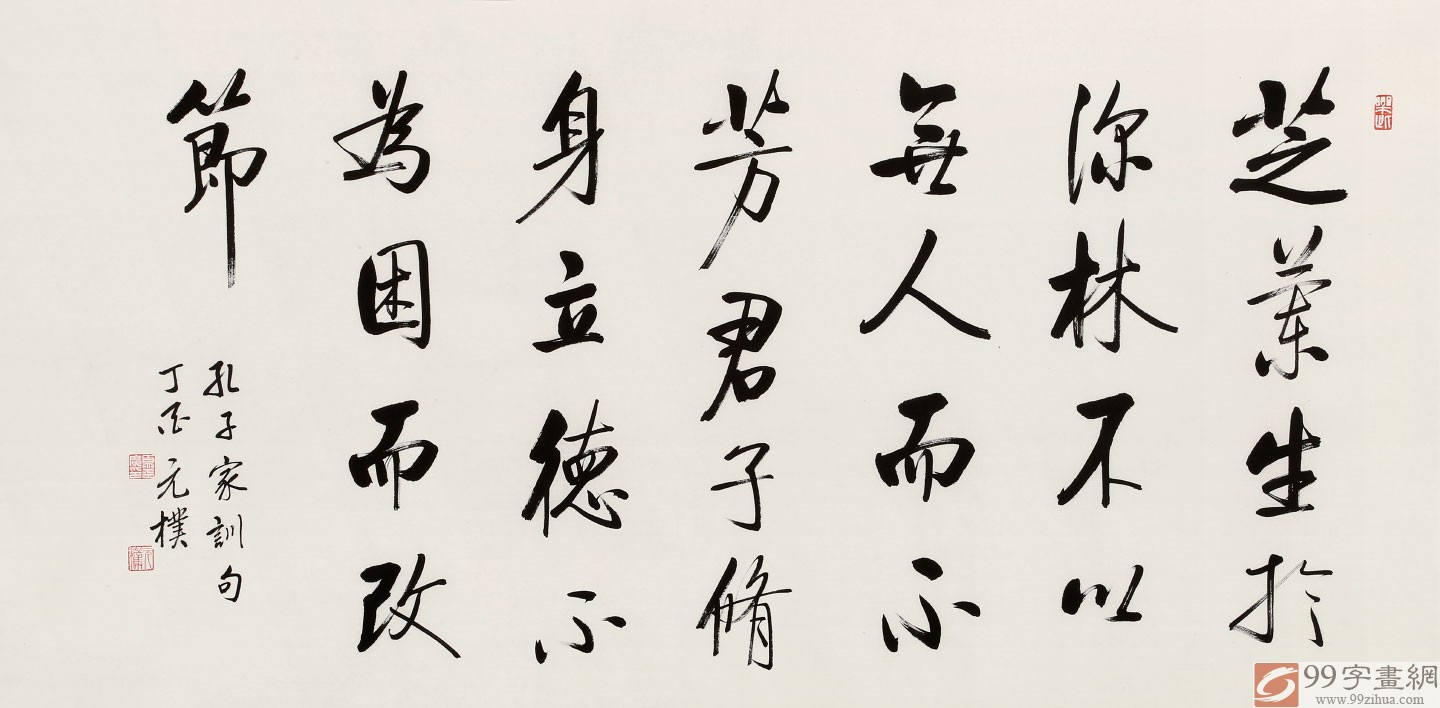 芝蘭生於
深林不以
無人而不
芳君子脩
身立德不
為困而改
節
孔子家訓句
丁酉元樸
99字畫網
www.99zihua.com